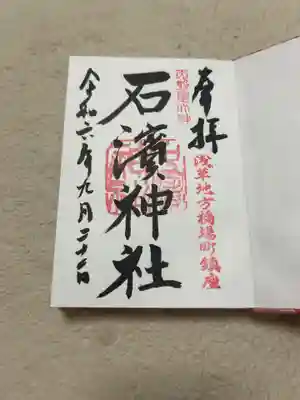 奉拝
浅草地方橋場町鎮座
石濱神社
令和六年九月二十二日